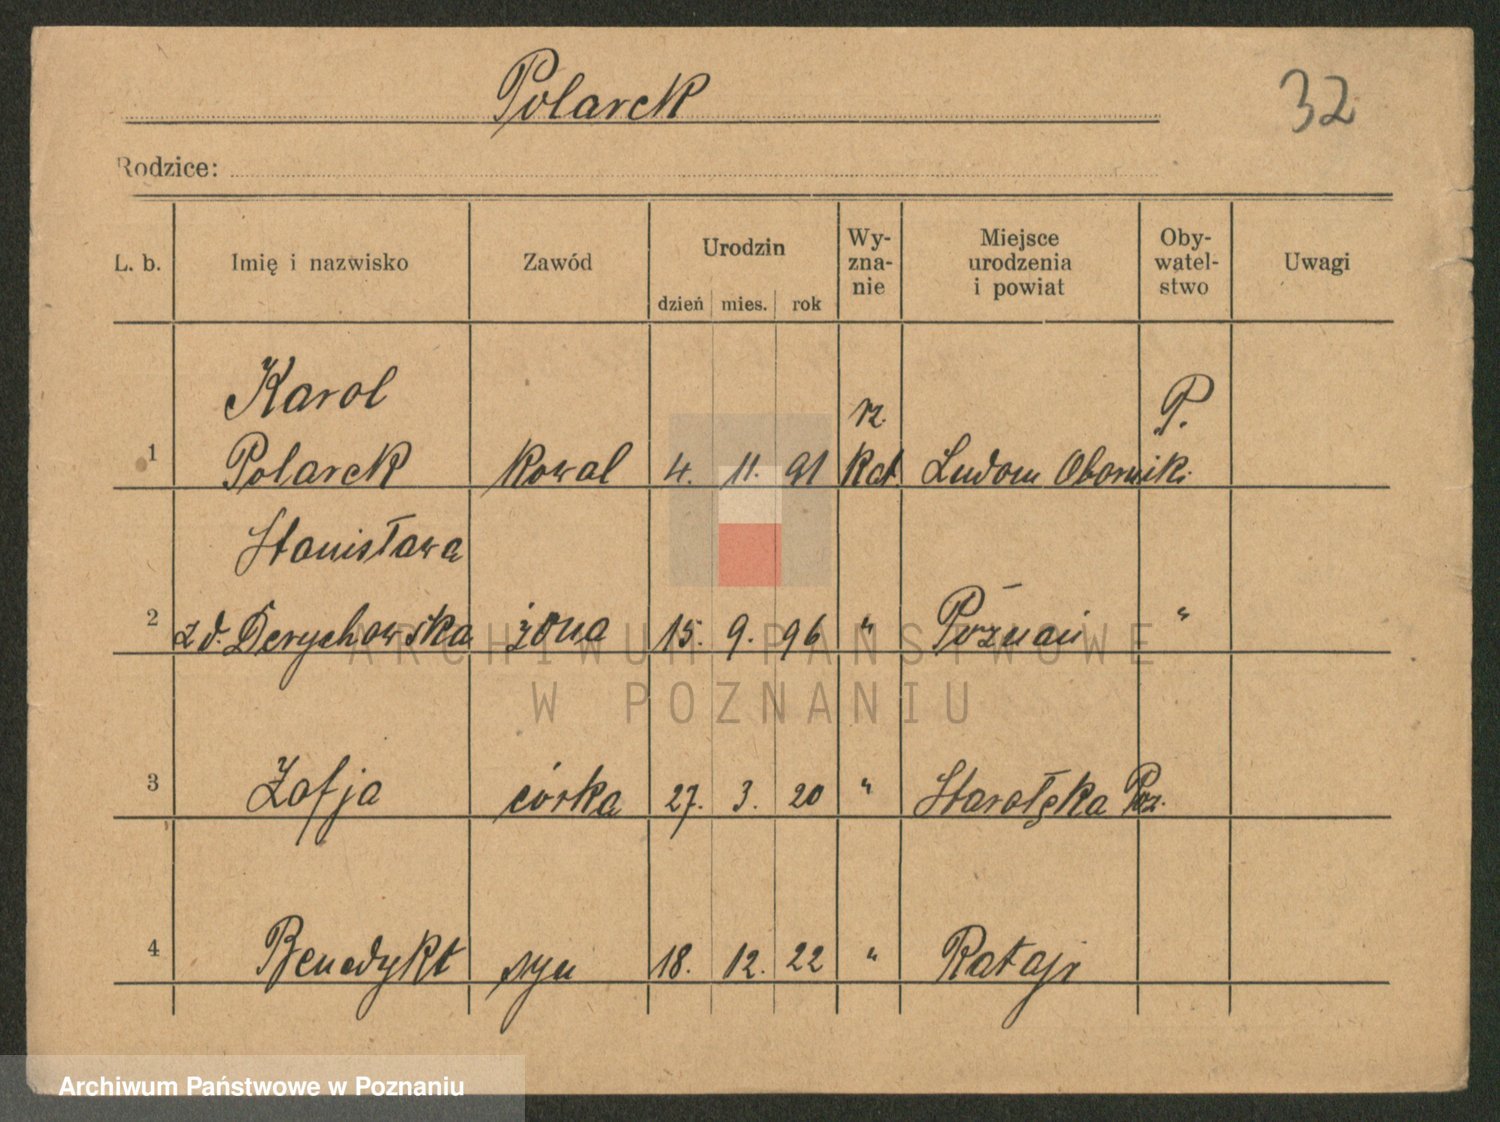 Polarck
32
Rodzice:
L. b. Imię i nazwisko Zawód Urodzin dzień mies. rok Wy-zna-nie Miejsce urodzenia i powiat Oby-watel-stwo Uwagi
Karol rz. P.
1 Polarck Kowal 4. 11. 91 Kat. Ludom Obornik.
Stanisława
2 z d. Derychowska żona 15. 9. 96 " Poznań "
3 Zofja córka 27. 3. 20 " Starołęka Poz.
4 Benedykt syn 18. 12. 22 " Rataje
ARCHIWUM PAŃSTWOWE
W POZNANIU
Archiwum Państwowe w Poznaniu